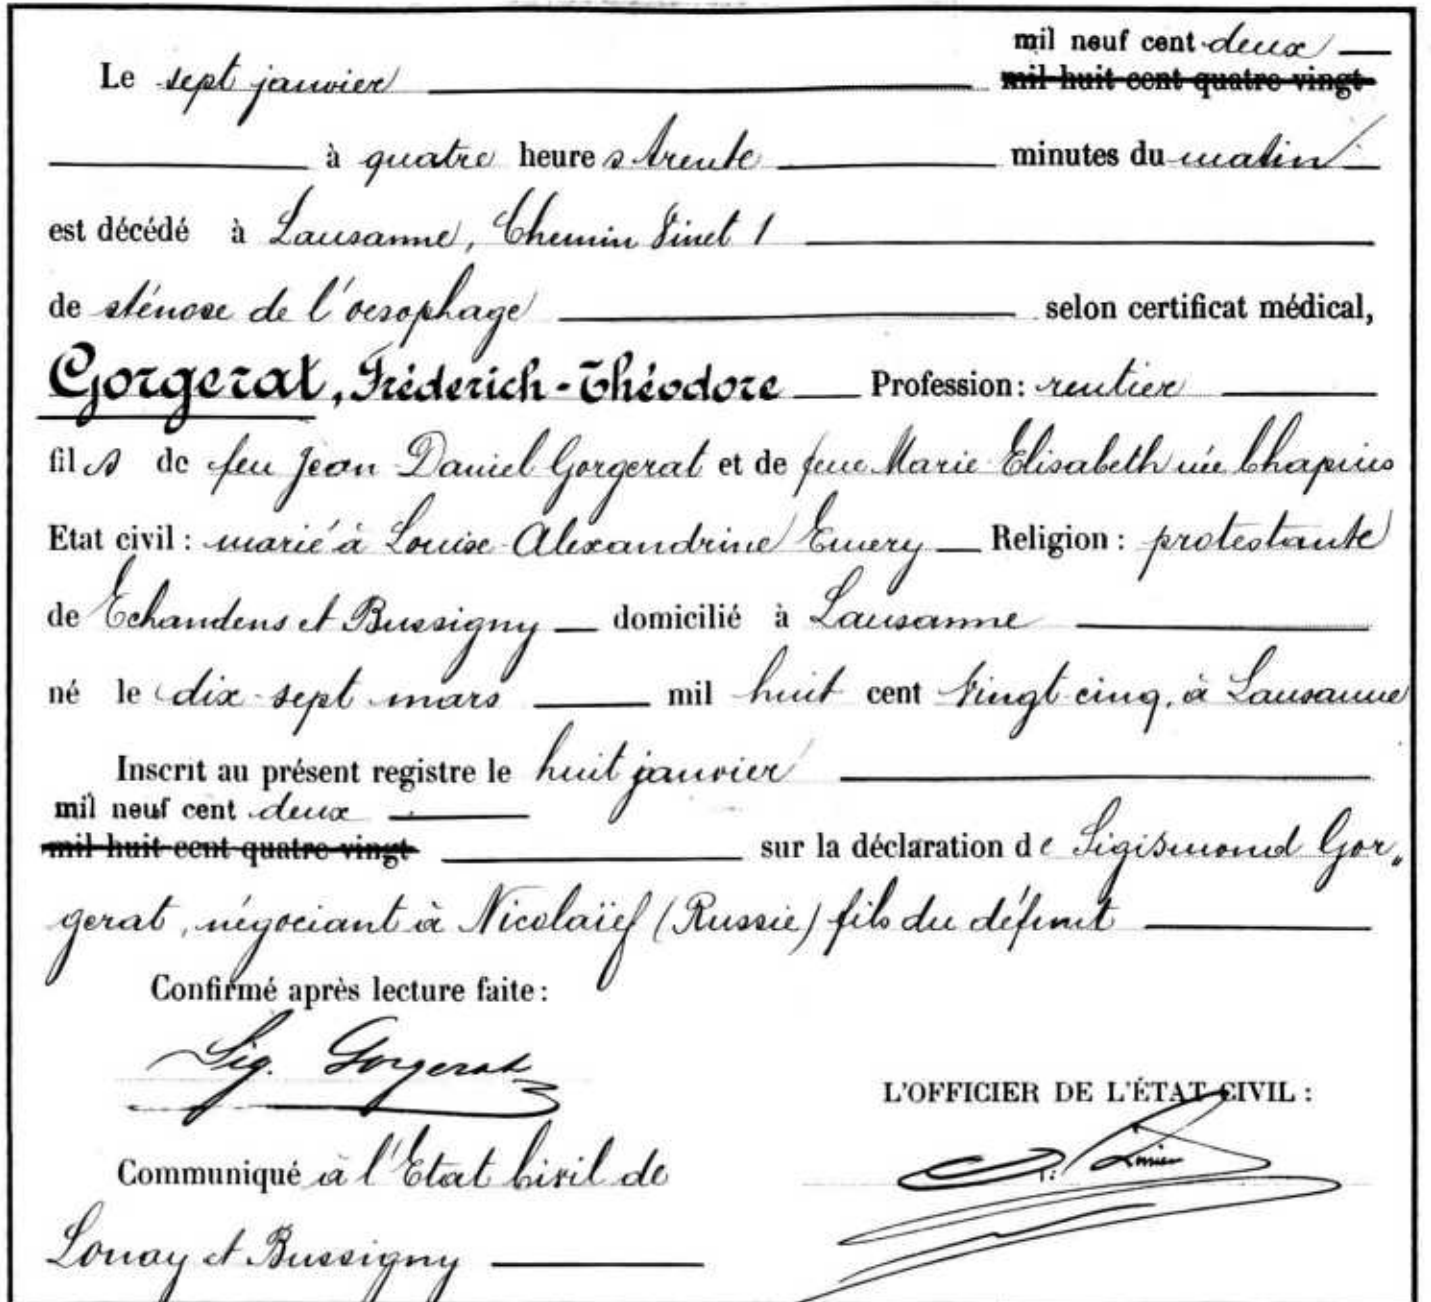 mil neuf cent deux
Le sept janvier mil huit cent quatre vingt
à quatre heures trente minutes du matin
est décédé à Lausanne, Chemin Vinet 1
de sténose de l'oesophage selon certificat médical,
Gorgerat, Fréderich-Théodore Profession: rentier
fils de feu Jean Daniel Gorgerat et de feue Marie Elisabeth née Chapuis
Etat civil : marié à Louise-Alexandrine Emery Religion : protestante
de Echandens et Bussigny domicilié à Lausanne
né le dix-sept mars mil huit cent vingt-cinq, à Lausanne
Inscrit au présent registre le huit janvier
mil neuf cent deux
mil huit cent quatre vingt sur la déclaration de Sigismond Gor„
gerat, négociant à Nicolaïef (Russie) fils du défunt
Confirmé après lecture faite :
Sig. Gorgerat
L'OFFICIER DE L'ÉTAT CIVIL :
Communiqué à l'Etat Civil de
Lonay et Bussigny